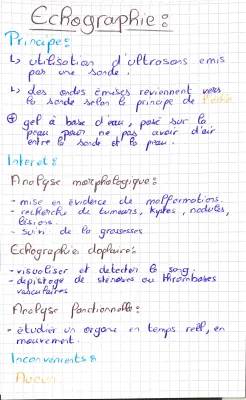 Echographie :
Principe :
↳ utilisation d'ultrasons émis
par une sonde.
↳ des ondes émises reviennent vers
la sonde selon le principe de l'écho
⊕ gel à base d'eau, posé sur la
peau pour ne pas avoir d'air
entre la sonde et la peau.
Interet :
Analyse morphologique :
- mise en évidence de malformations.
- recherche de tumeurs, kystes, nodules,
lésions.
- suivi de la grossesses
Echographie doplaire :
- visualiser et detecter le sang.
- depistage de sténoses ou thromboses
vasculaires
Analyse fonctionnelle :
- étudier un organe en temps réel, en
mouvement.
Inconvenients :
Aucun